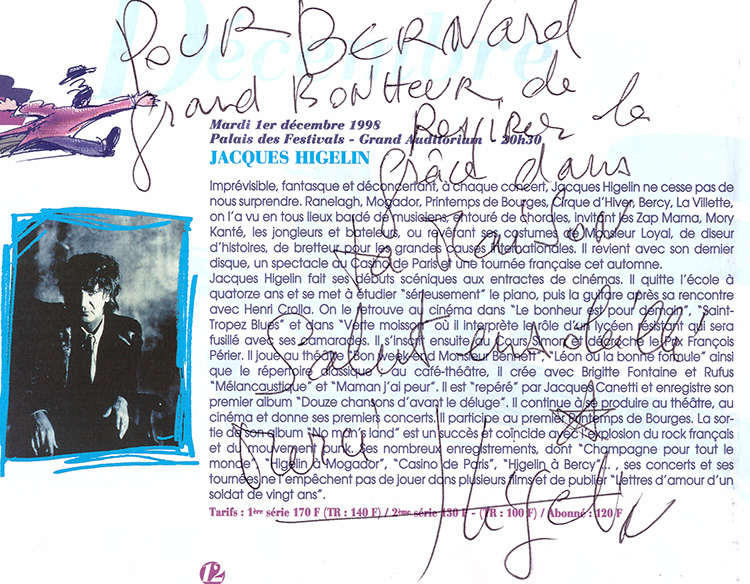 Décembre
POUR BERNARD
grand BONHEUR de
RESPIRER la
grâce dans
ta Maison
Salut
Merci
Higelin
Mardi 1er décembre 1998
Palais des Festivals - Grand Auditorium - 20h30
JACQUES HIGELIN
Imprévisible, fantasque et déconcertant, à chaque concert, Jacques Higelin ne cesse pas de
nous surprendre. Ranelagh, Mogador, Printemps de Bourges, Cirque d'Hiver, Bercy, La Villette,
on l'a vu en tous lieux bardé de musiciens, entouré de chorales, invitant les Zap Mama, Mory
Kanté, les jongleurs et bateleurs, ou revêtant ses costumes de Monsieur Loyal, de diseur
d'histoires, de bretteur pour les grandes causes humanitaires. Il revient avec son dernier
disque, un spectacle au Casino de Paris et une tournée française cet automne.
Jacques Higelin fait ses débuts scéniques aux entractes de cinémas. Il quitte l'école à
quatorze ans et se met à étudier "sérieusement" le piano, puis la guitare après sa rencontre
avec Henri Crolla. On le retrouve au cinéma dans "Le bonheur est pour demain", "Saint-
Tropez Blues" et dans "Verte moisson" où il interprète le rôle d'un lycéen résistant qui sera
fusillé avec ses camarades. Il s'inscrit ensuite au cours Simon et décroche le Prix François
Périer. Il joue au théâtre "Bon week-end Monsieur Bennett", "Léon ou la bonne formule" ainsi
que le répertoire classique. Au café-théâtre, il crée avec Brigitte Fontaine et Rufus
"Mélancaustique" et "Maman j'ai peur". Il est "repéré" par Jacques Canetti et enregistre son
premier album "Douze chansons d'avant le déluge". Il continue à se produire au théâtre, au
cinéma et donne ses premiers concerts. Il participe au premier Printemps de Bourges. La sor-
tie de son album "No man's land" est un succès et coïncide avec l'explosion du rock français
et du mouvement punk. Ses nombreux enregistrements, dont "Champagne pour tout le
monde", "Higelin à Mogador", "Casino de Paris", "Higelin à Bercy"..., ses concerts et ses
tournées ne l'empêchent pas de jouer dans plusieurs films et de publier "Lettres d'amour d'un
soldat de vingt ans".
Tarifs : 1ère série 170 F (TR : 140 F) / 2ème série 130 F - (TR : 100 F) / Abonné : 120 F
12